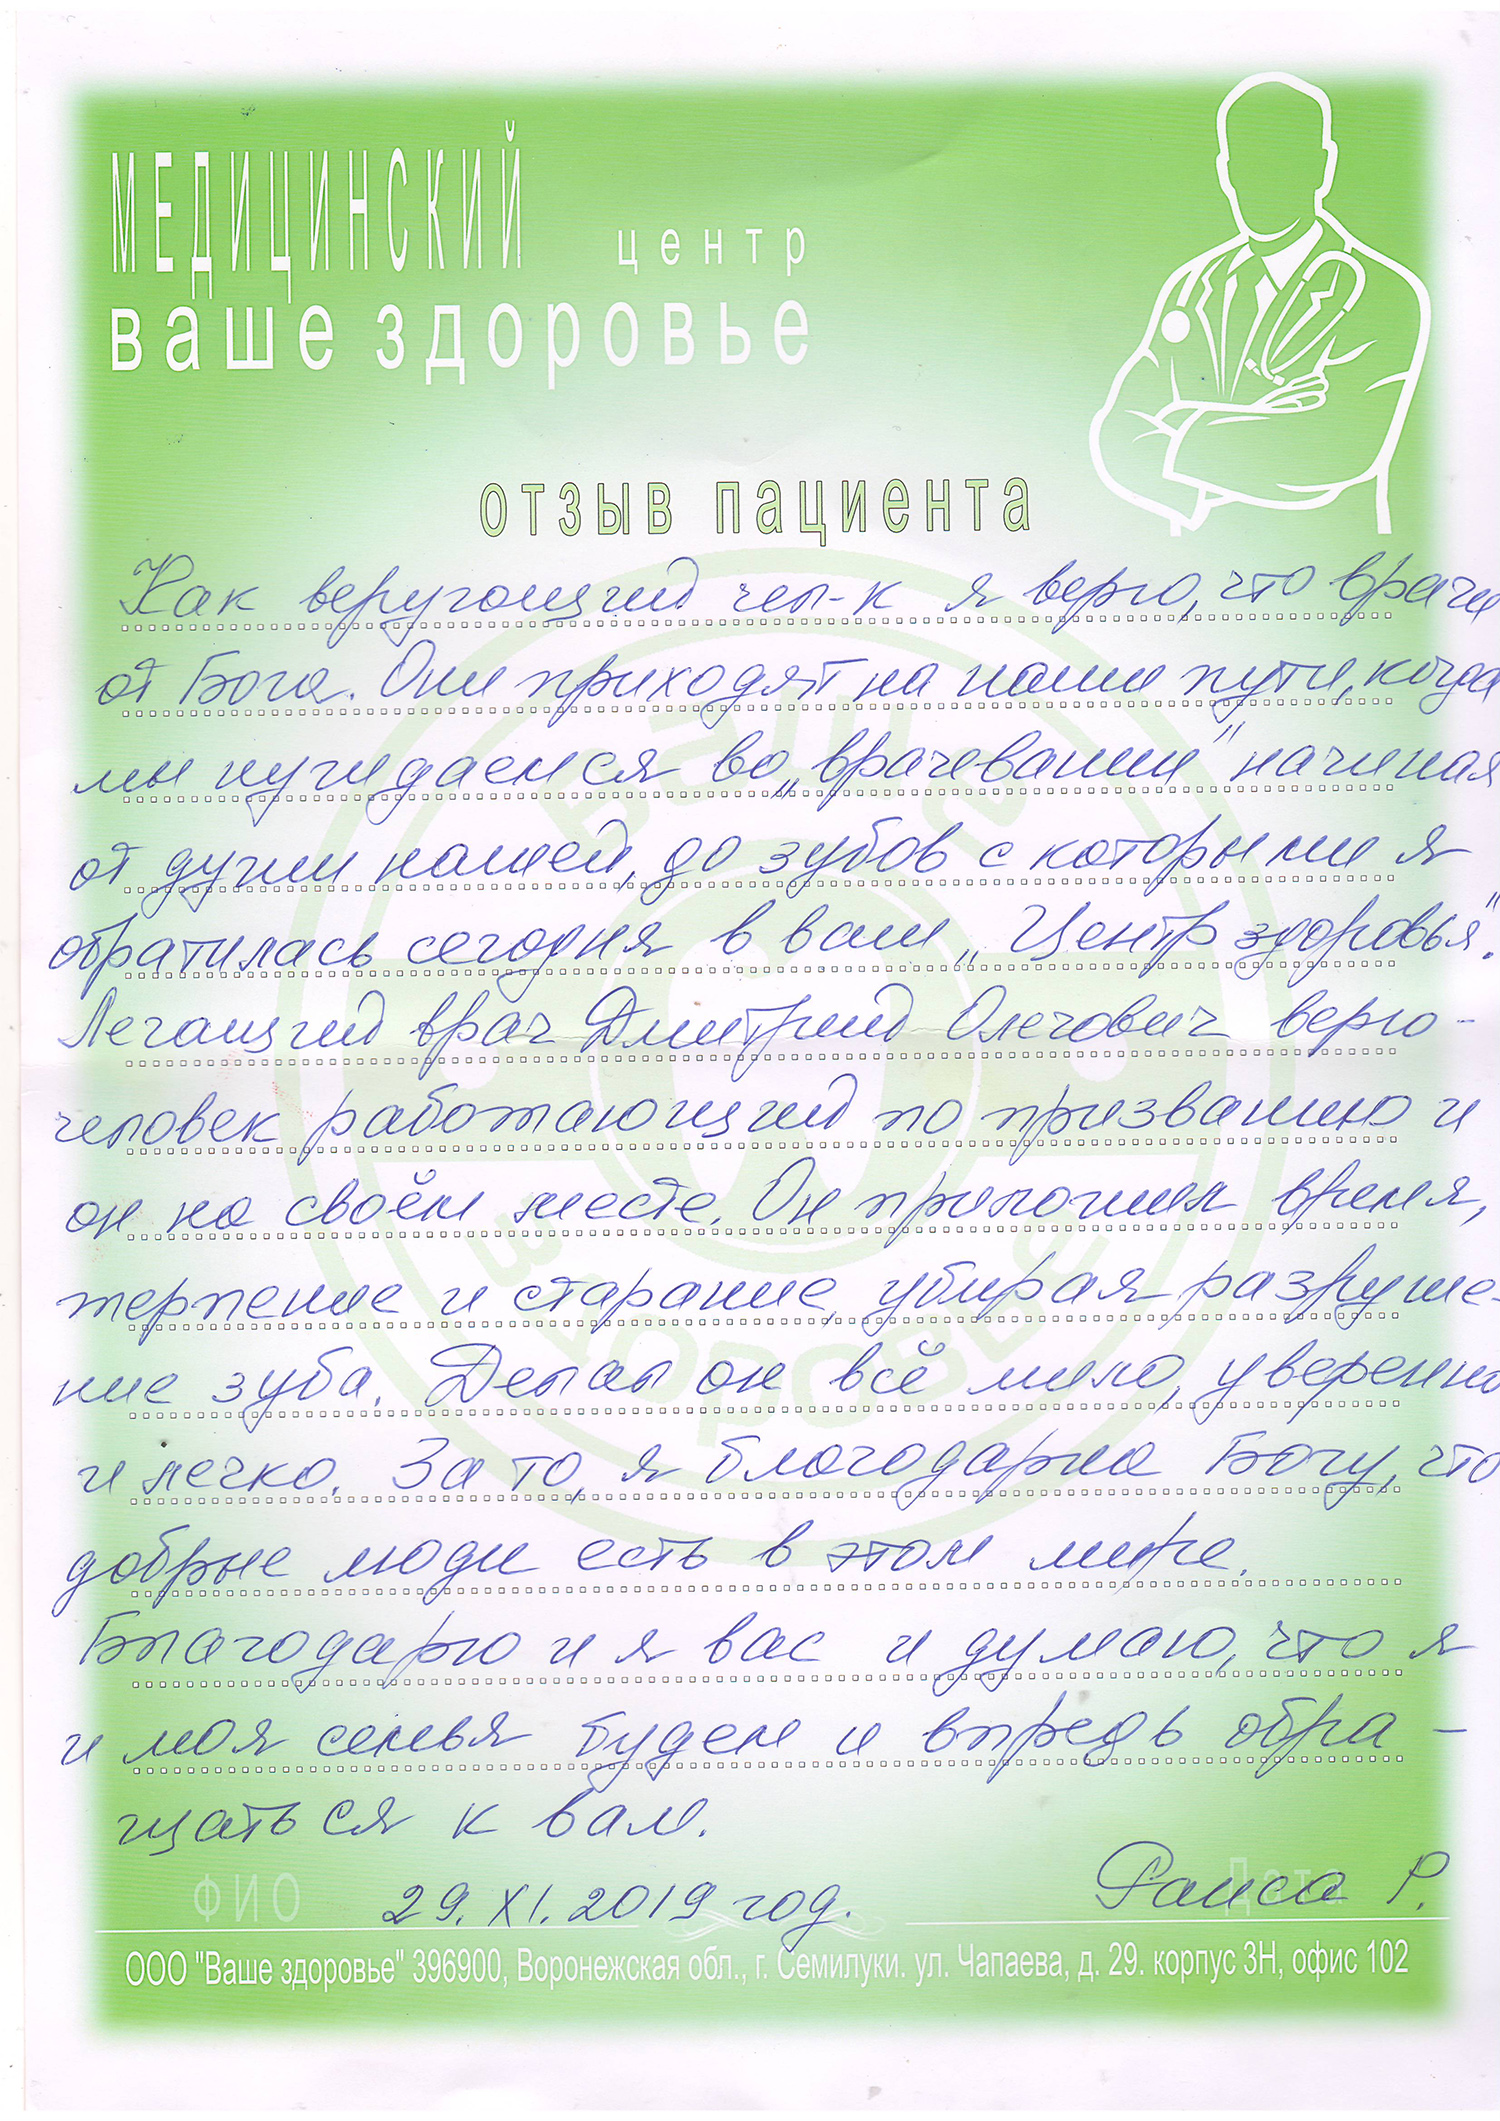 МЕДИЦИНСКИЙ центр
ваше здоровье
отзыв пациента
Как верующий чел-к я верю, что врачи
от Бога. Они приходят на наши пути, когда
мы нуждаемся во „врачевании" начиная
от души нашей, до зубов с которыми я
обратилась сегодня в ваш „Центр здоровья".
Лечащий врач Дмитрий Олегович верю-
человек работающий по призванию и
он на своём месте. Он приложил время,
терпение и старание, убирая разруше-
ние зуба. Делал он всё мило, уверенно
и легко. За то, я благодарна Богу, что
добрые люди есть в этом мире.
Благодарю и я вас и думаю, что я
и моя семья будем и впредь обра-
щаться к вам.
ФИО 29. XI. 2019 год. Дата Раиса Р.
ООО "Ваше здоровье" 396900, Воронежская обл., г. Семилуки. ул. Чапаева, д. 29. корпус 3Н, офис 102